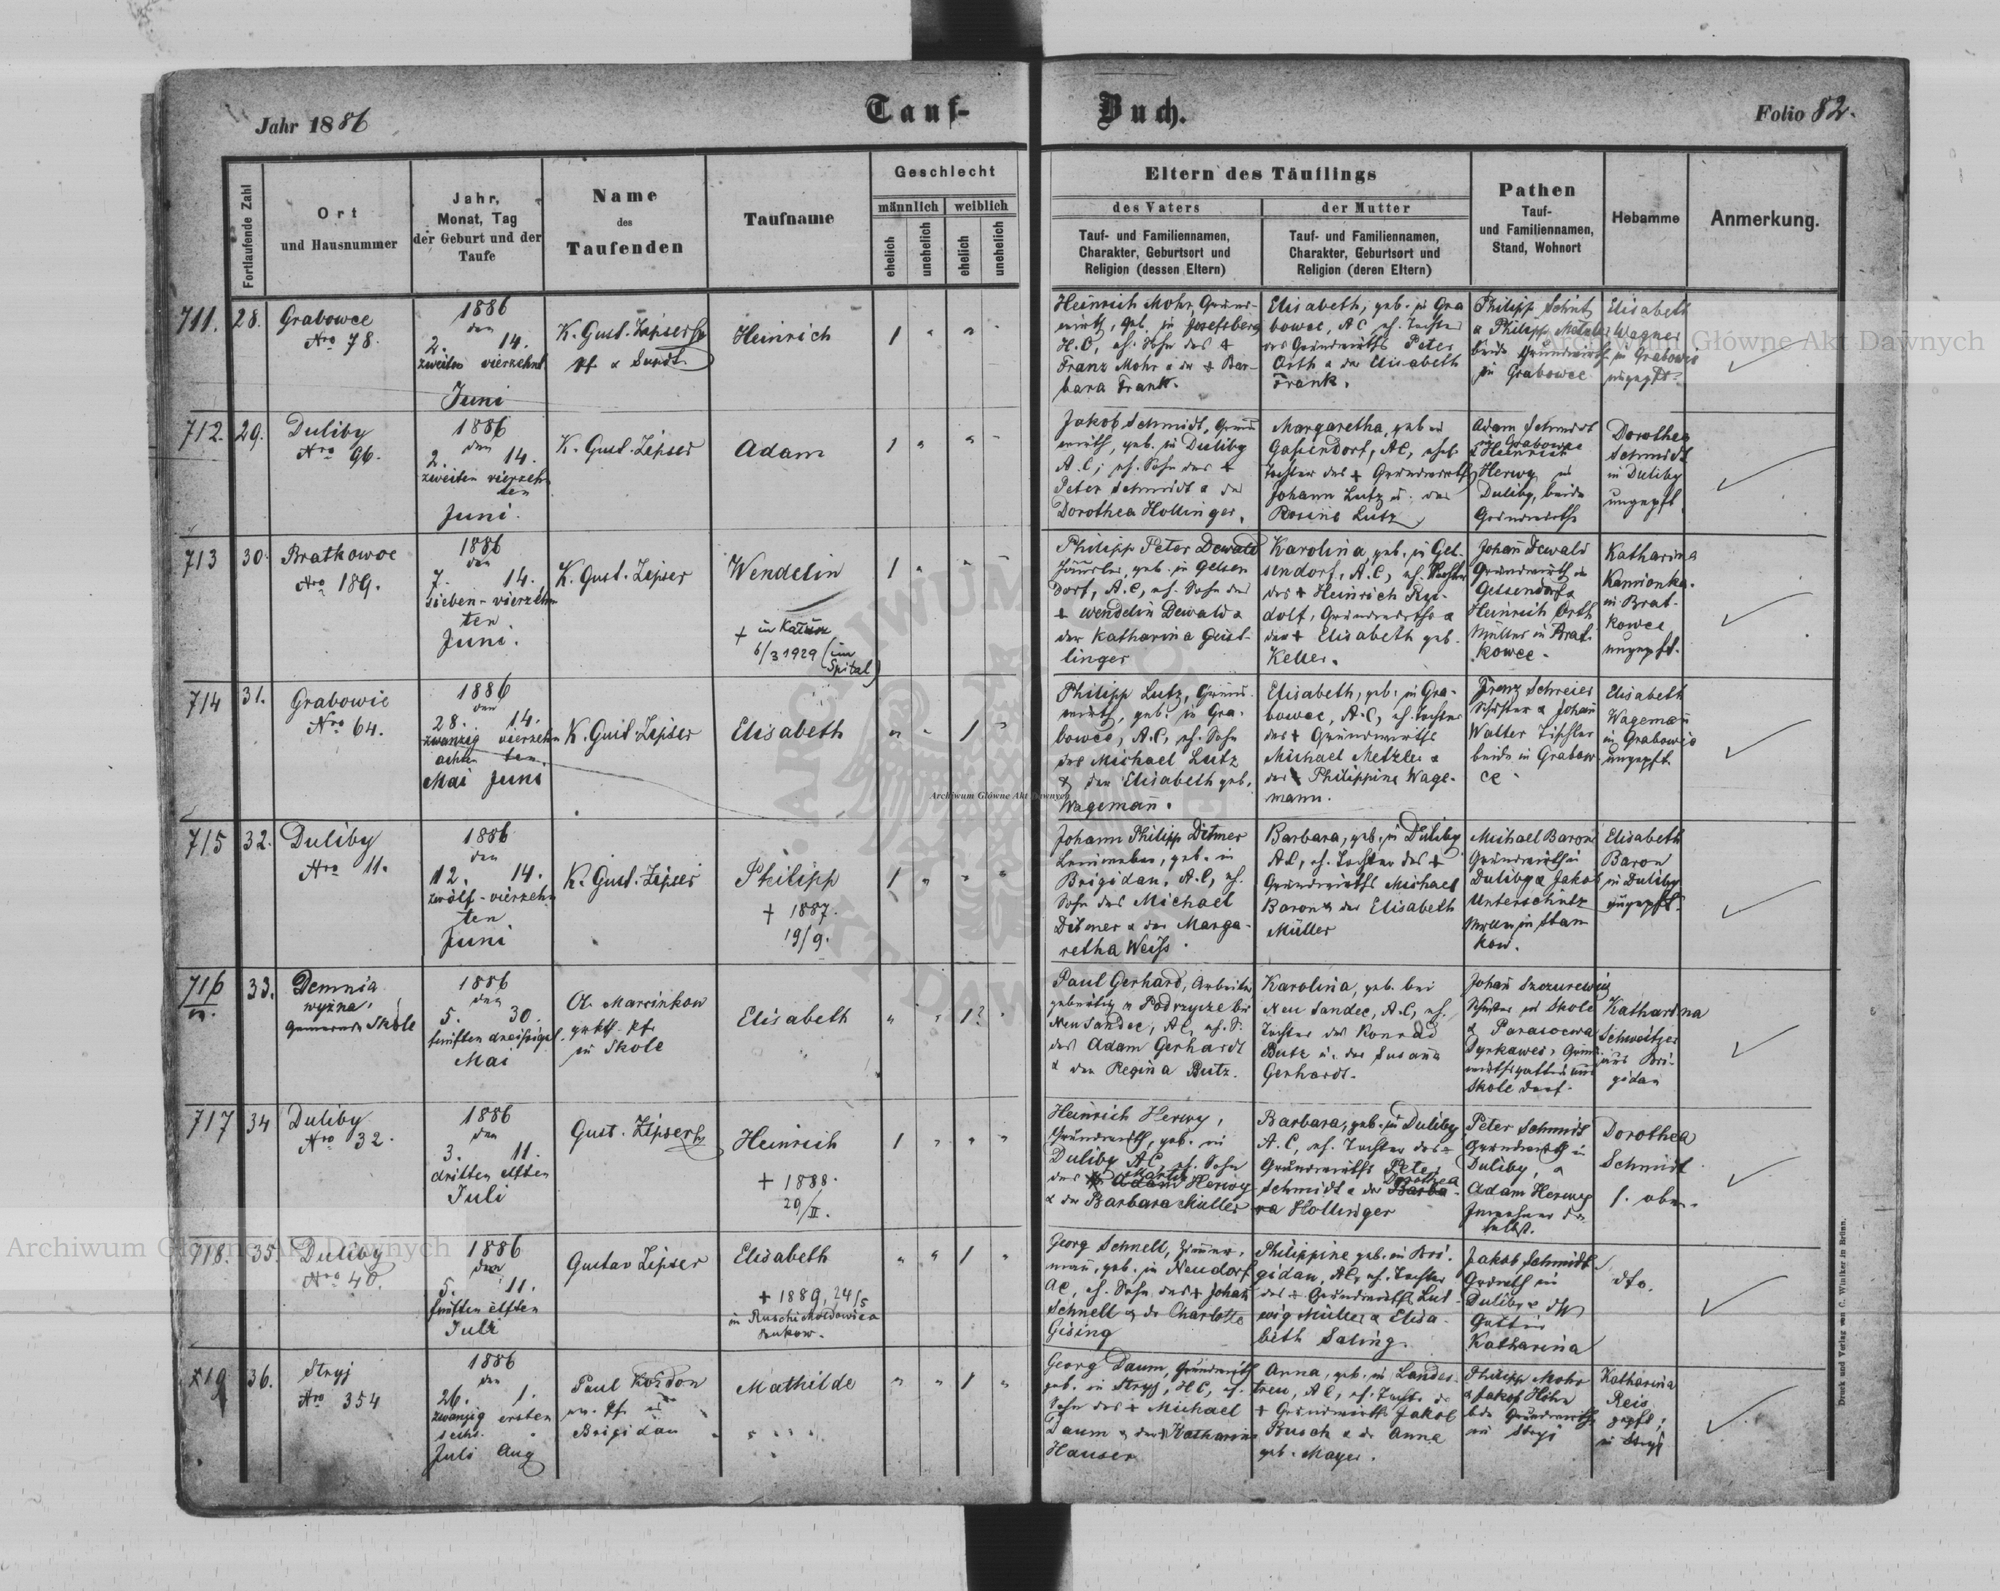 Jahr 1886
Tauf-
Buch.
Folio 82.
Fortlaufende Zahl
Ort
und Hausnummer
Jahr,
Monat, Tag
der Geburt und der
Taufe
Name
des
Taufenden
Taufname
Geschlecht
männlich
weiblich
ehelich
unehelich
ehelich
unehelich
Eltern des Täuflings
des Vaters
Tauf- und Familiennamen,
Charakter, Geburtsort und
Religion (dessen Eltern)
der Mutter
Tauf- und Familiennamen,
Charakter, Geburtsort und
Religion (deren Eltern)
Pathen
Tauf-
und Familiennamen,
Stand, Wohnort
Hebamme
Anmerkung.
711. 28.
Grabowce
Nro 78.
1886
den
2. 14.
zweiten vierzehnt.
Juni
K. Gust. Zipser
Heinrich
1 " " "
Heinrich Mohr, Grund-
wirth, geb. in Josefsberg
H.C, eh. Sohn des +
Franz Mohr u der + Bar-
bara Frank.
Elisabeth, geb. in Gra
bowce, AC eh. Tochter
des Grundwirths Peter
Orth u der Elisabeth
Frank.
Philipp Schütz
u Philipp Metzler
beide Grundwirth
in Grabowce
Elisabeth
Wagner
in Grabowce
ungepft.
712. 29.
Duliby
Nro 96.
1886
den
2. 14.
zweiten vierzehn
ten
Juni.
K. Gust. Zipser
Adam
1 " " "
Jakob Schmidt, Grund
wirth, geb. in Duliby
A.C, eh. Sohn des +
Peter Schmidt u der
Dorothea Hollinger.
Margaretha, geb in
Gassendorf, AC, ehel.
Tochter des + Grundwirths
Johann Lutz u. der
Rosine Lutz
Adam Schmidt
in Grabowce
u Heinrich
Herwy in
Duliby, beide
Grundwirthe
Dorothea
Schmidt
in Duliby
ungepft
713 30.
Bratkowce
Nro 189.
1886
den
7. 14.
sieben- vierzehn
ten
Juni.
K. Gust. Zipser
Wendelin
+ in
6/3 1929 (im
Spital)
1 " " "
Philipp Peter Dewald
Häusler, geb. in Gelsen
dorf, A.C, eh. Sohn des
+ Wendelin Dewald u
der Katharina Geist-
linger
Karolina, geb. in Gel-
sendorf, A.C, eh. Tochter
des + Heinrich Ru-
dolf, Grundwirths u
der + Elisabeth geb.
Keller.
Johann Dewald
Grundwirth in
Gelsendorf u
Heinrich Orth
Müller in Brat-
kowce.
Katharina
Kamionka.
in Brat-
kowce
ungepft.
714 31.
Grabowic
Nro 64.
1886
den
28. 14.
zwanzig vierzehn
achten ten.
Mai Juni
K. Gust Zipser
Elisabeth
" " 1 "
Philipp Lutz, Grund-
wirth, geb. in Gra-
bowce, A.C, eh. Sohn
des Michael Lutz
u der Elisabeth geb.
Wageman.
Elisabeth, geb. in Gra-
bowce, A.C, eh. Tochter
des + Grundwirths
Michael Metzler u
der Philippine Wage-
mann.
Franz Schreier
Schuster u Johann
Walter Tischler
beide in Grabow
ce
Elisabeth
Wageman
in Grabowic
ungepft
715 32.
Duliby
Nro 11.
1886
den
12. 14.
zwölf- vierzehn
ten
Juni
K. Gust. Zipser
Philipp
+ 1887.
19/9.
1 " " "
Johann Philipp Ditmer
geb. in
Brigidau, A.C, eh.
Sohn des Michael
Ditmer u der Marga-
retha Weiss
Barbara, geb. in Duliby
AC, eh. Tochter des +
Grundwirths Michael
Baron u der Elisabeth
Müller
Michael Baron
Grundwirth in
Duliby u Jakob
Unterschütz
in Stan
kow.
Elisabeth
Baron
in Duliby
ungepft.
716 33.
Demnia
wyżna,
Skole
1886
den
5. 30.
fünften dreissigst.
Mai
A. Marcinkow
Pf.
in Skole
Elisabeth
" " 1? "
Paul Gerhard, Arbeiter
gebürtig v Podrzycze bei
Neu Sandec, AC, eh. S.
des Adam Gerhardt
u der Regina Butz.
Karolina, geb. bei
Neu Sandec, A.C, eh.
Tochter des Konrad
Butz u. der Susana
Gerhardt.
Johan Szczurewicz
in Skole
u Parascewa
Dyrkawec,
Skole dorf.
Katharina
Schweitzer
aus Bri-
gidau
717 34
Duliby
Nro 32.
1886
den
3. 11.
dritten elften
Juli
Gust. Zipser
Heinrich
+ 1888.
29/II.
1 " " "
Heinrich Herwy,
Grundwirth, geb. in
Duliby AC, eh. Sohn
des Adam Herwy
u der Barbara Müller
Barbara, geb. in Duliby
A.C, eh. Tochter des
Grundwirths Peter
Dorothea
Schmidt u der Barba
ra Hollinger
Peter Schmidt
Grundwirth in
Duliby, u
Adam Herwy
Inwohner da
selbst.
Dorothea
Schmidt
s. oben.
718. 35.
Duliby
Nro 40.
1886
den
5. 11.
fünften elften
Juli
Gustav Zipser
Elisabeth
+ 1889, 24/5
in
" " 1 "
Georg Schnell, Zimmer-
man, geb. in Neudorf
AC, eh. Sohn des + Johan
Schnell u der Charlotte
Gising
Philippine geb. in Bri-
gidau, AC, eh. Tochter
des + Grundwirths Lud-
wig Müller u Elisa-
beth Saling.
Jakob Schmidt
in
Duliby u
Gattin
Katharina
dto.
719 36.
Stryj
Nro 354
1886
den
26. 1.
zwanzig ersten
sechs.
Juli Aug
Paul Kordon
Pf. in
Brigidau
Mathilde
" " 1 "
Georg Daum, Grundwirth
geb. in Stryj, H.C, eh.
Sohn des + Michael
Daum u der + Katharina
Hauser
Anna, geb. in Landes-
treu, AC, eh. Tocht. de
+ Grundwirths Jakob
Busch u der Anna
geb. Mayer.
Philipp Mohr
u Jakob Höhn
bde Grundwirthe
in Stryj
Katharina
Reis
gepft,
in Stryj
Druck und Verlag von C. Winiker in Brünn.
Archiwum Główne Akt Dawnych
Archiwum Główne Akt Dawnych
Archiwum Główne Akt Dawnych